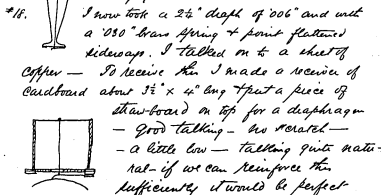 #18. I now took a 2¼" diaph of .006" and with
a .030" brass spring & point flattened
sideways. I talked on to a sheet of
copper — To receive this I made a receiver of
cardboard about 3½" x 4" long & put a piece of
straw-board on top for a diaphragm
— good talking — no scratch —
— a little low — talking quite natu-
ral — if we can reinforce this
sufficiently it would be perfect